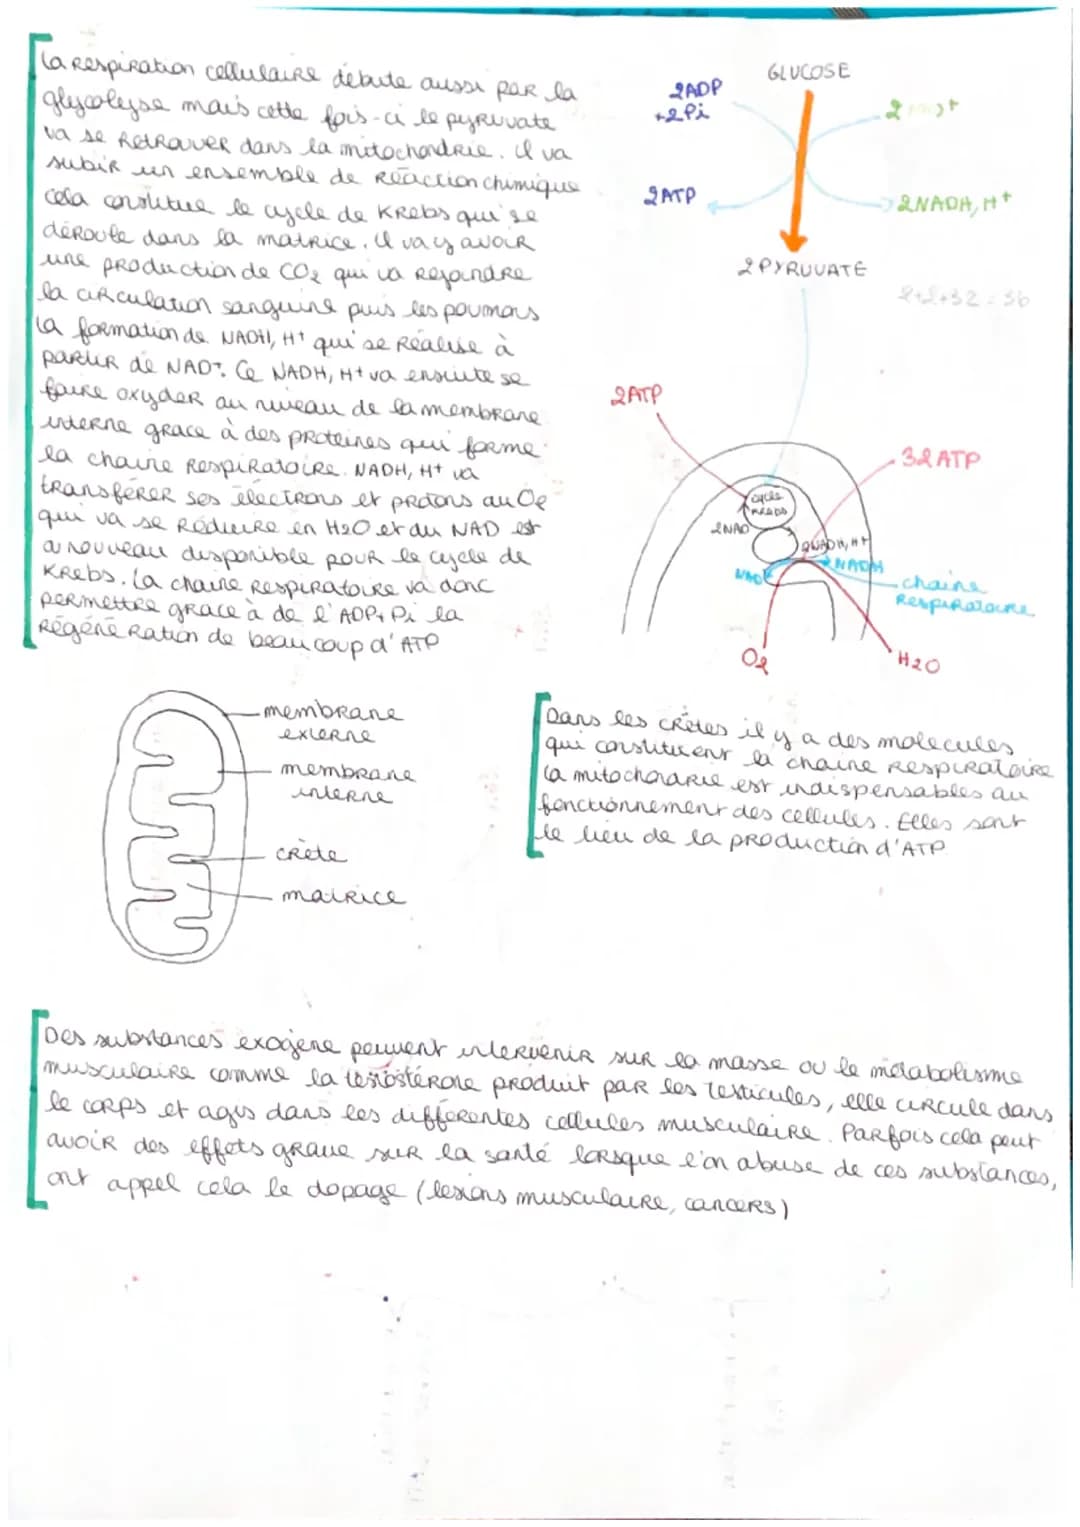 La respiration cellulaire débute aussi par la
glycolyse mais cette fois-ci le pyruvate
va se retrouver dans la mitochondrie. Il va
subir un ensemble de réaction chimique
cela constitue le cycle de Krebs qui se
déroule dans la matrice. Il va y avoir
une production de CO2 qui va rejoindre
la circulation sanguine puis les poumons
la formation de NADH, H+ qui se réalise à
partir de NAD+. Ce NADH, H+ va ensuite se
faire oxyder au niveau de la membrane
interne grace à des protéines qui forme
la chaine respiratoire. NADH, H+ va
transférer ses électrons et protons au O2
qui va se réduire en H2O et du NAD est
a nouveau disponible pour le cycle de
Krebs. La chaine respiratoire va donc
permettre grace à de l'ADP+Pi la
régénération de beaucoup d'ATP
GLUCOSE
2ADP
+2Pi
2
2ATP
2NADH, H+
2 PYRUVATE
2+2+32=36
2ATP
32ATP
cycle
KREBS
2NAD
2NADH, H+
NAD
NADH
chaine
respiratoire
O2
H2O
membrane
externe
membrane
interne
crête
matrice
Dans les crêtes il y a des molécules
qui constituent la chaine respiratoire
la mitochondrie est indispensables au
fonctionnement des cellules. Elles sont
le lieu de la production d'ATP
Des substances exogène peuvent intervenir sur la masse ou le métabolisme
musculaire comme la testostérone produit par les testicules, elle circule dans
le corps et agis dans les différentes cellules musculaire. Parfois cela peut
avoir des effets grave sur la santé lorsque l'on abuse de ces substances,
ont appel cela le dopage (lésions musculaire, cancers)